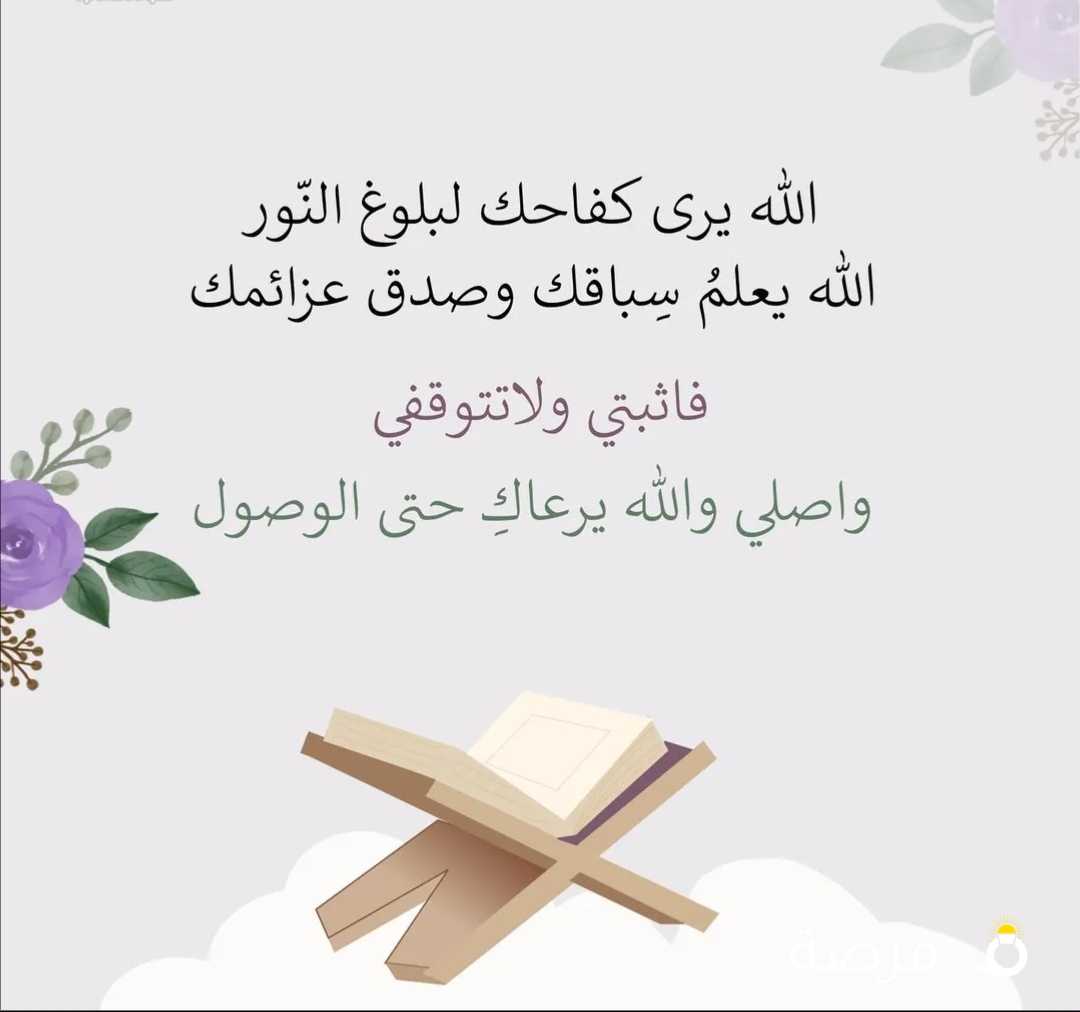 الله يرى كفاحك لبلوغ النّور
الله يعلمُ سِباقك وصدق عزائمك
فاثبتي ولاتتوقفي
واصلي والله يرعاكِ حتى الوصول